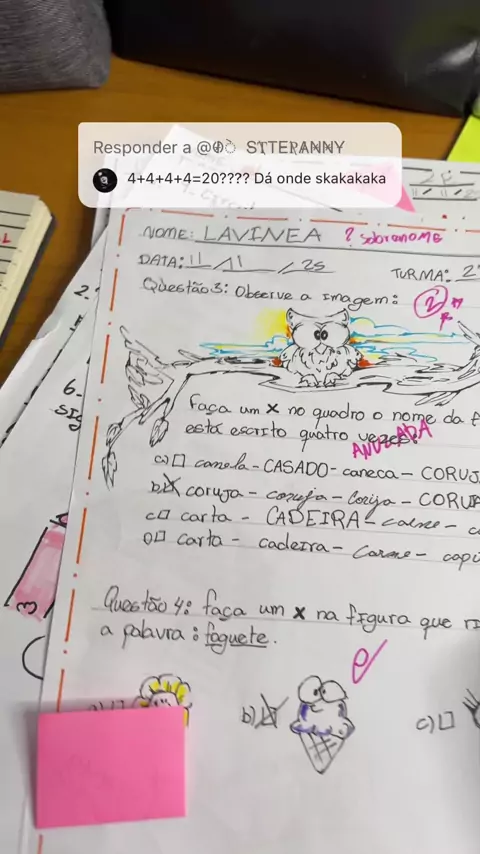 Responder a @
4+4+4+4=20???? Dá onde skakakaka
NOME: LAVINEA ? SobreNOME
DATA: 11 / 11 / 25
TURMA: 2
Questão 3: Observe a imagem: 2
Faça um x no quadro o nome da f
está escrito quatro vezes:
ANULADA
a) canela - CASADO - caneca - CORUJ
b) X coruja - coruja - coruja - CORUJA
c) carta - CADEIRA - carne - c
D) carta - cadeira - carne - capi
Questão 4: faça um x na figura que ri
a palavra: foguete.
b)
c)
2.
6.
3